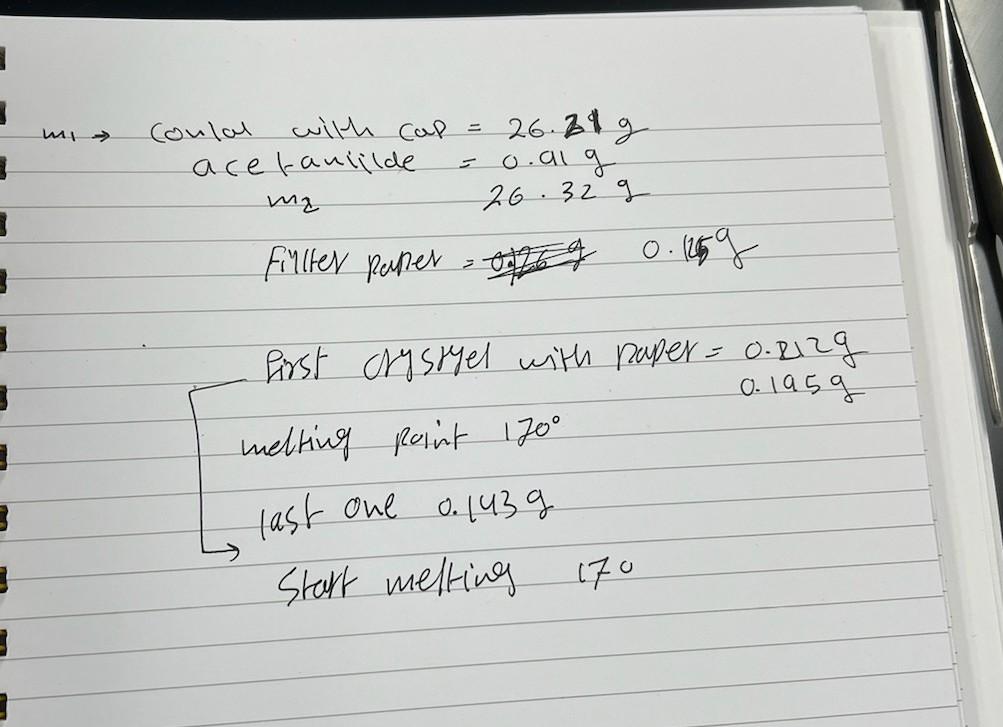 m1 → Conlal with cap = 26.21 g
acetanlilde = 0.91 g
m2 26.32 g
Fillter paper = 0.126 g 0.125g
First crystyel with paper = 0.212g
0.195g
melting point 170°
last one 0.143 g
Start melting 170